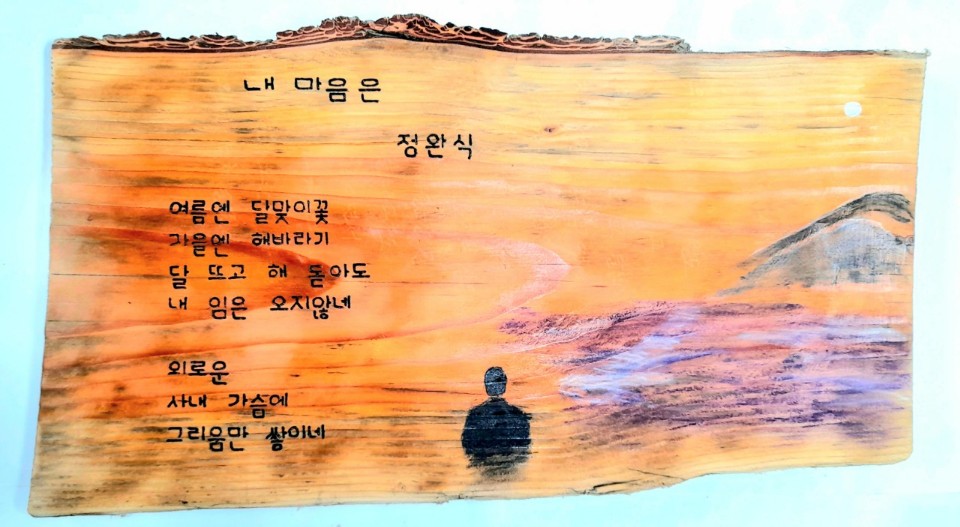 내 마음은
정완식
여름엔 달맞이꽃
가을엔 해바라기
달 뜨고 해 돋아도
내 임은 오지않네
외로운
사내 가슴에
그리움만 쌓이네